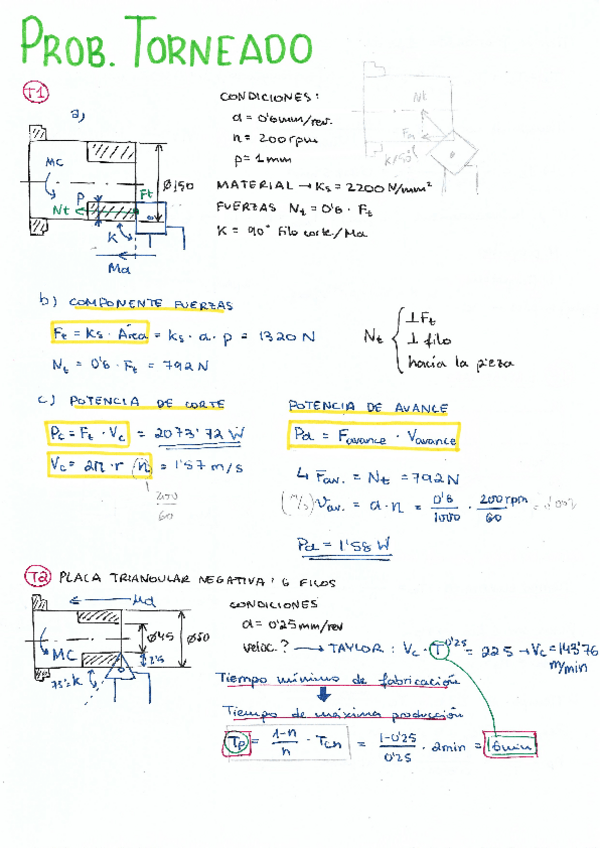 PROB. TORNEADO
T1
a)
CONDICIONES:
a = 0'6 mm/rev.
n = 200 rpm
p = 1 mm
MATERIAL → Ks = 2200 N/mm²
FUERZAS Nt = 0'6 · Ft
K = 90° Filo corte/Ma
MC
P
Nt
Ft
Ø150
K
Ma
Nt
Fa
b) COMPONENTE FUERZAS
Ft = Ks · Área = Ks · a · p = 1320 N
Nt = 0'6 · Ft = 792 N
Nt { ⊥ Ft
⊥ filo
hacia la pieza
c) POTENCIA DE CORTE
Pc = Ft · Vc = 2073'72 W
Vc = 2π · r · (n) = 1'57 m/s
200/60
POTENCIA DE AVANCE
Pa = Favance · Vavance
↳ Fav. = Nt = 792 N
(m/s) Vav. = a · n = 0'6/1000 · 200rpm/60
Pa = 1'58 W
T2 PLACA TRIANGULAR NEGATIVA: 6 FILOS
Ma
MC
Ø45
Ø50
2'5
75° = K
CONDICIONES
a = 0'25 mm/rev
veloc.? → TAYLOR: Vc · T^0'25 = 225 → Vc = 143'76 m/min
Tiempo mínimo de fabricación
Tiempo de máxima producción
Tp = 1-n/n · Tcn = 1-0'25/0'25 · 2min = 6min